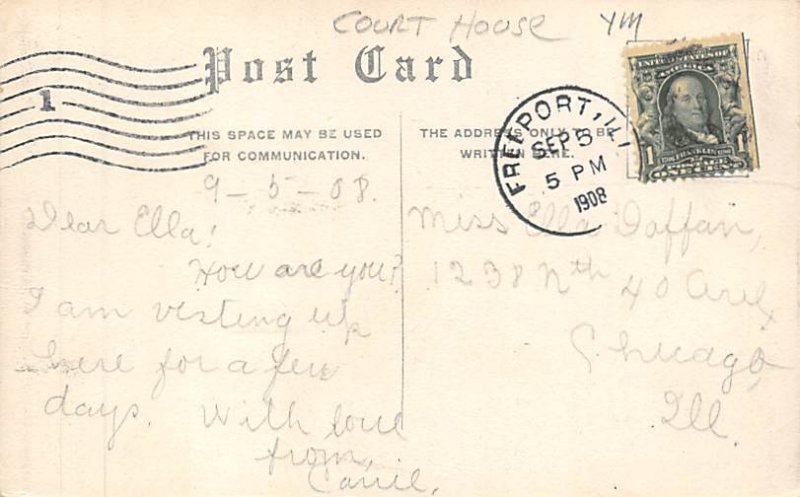 COURT HOUSE YM
Post Card
1
THIS SPACE MAY BE USED
FOR COMMUNICATION.
THE ADDRESS ONLY TO BE
WRITTEN HERE.
FREEPORT, ILL
SEP 5
5 PM
1908
1
FRANKLIN
9-5-08.
Dear Ella!
How are you?
I am visting up
here for a few
days. With love
from,
Miss Ella
1238 Nth 40 Ave,
Chicago,
Ill.